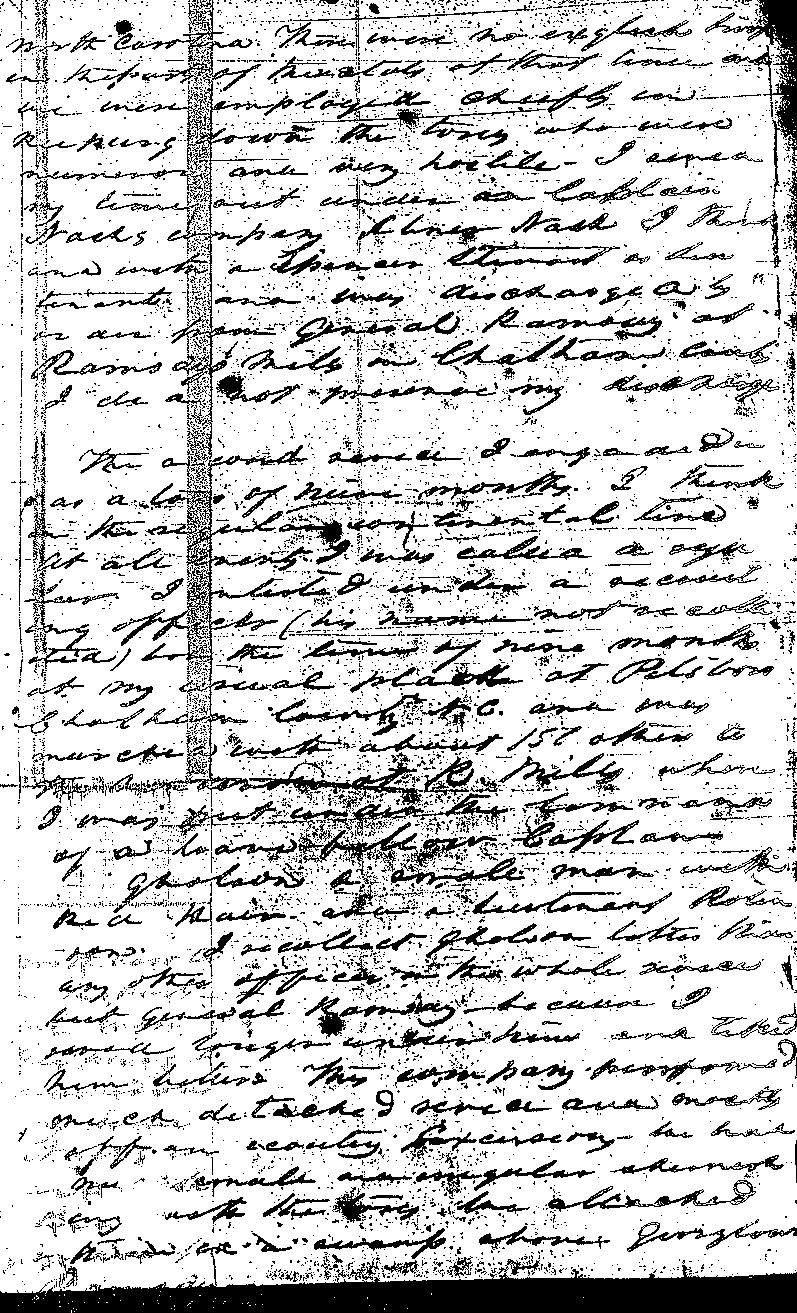 North Carolina. There were no english troops
in the part of the state at that time and
we were employed chiefly in
keeping down the tory who were
numerous and very hostile - I served
my time out under a Captain
Nash's company Abner Nash I think
and with a Spencer Stewart as lieu
tenant and was discharged by
order from General Ramsey at
Ramsays Mills on Chatham County
I do not preserve my discharge
The second service I engaged in
was a tour of nine months. I think
in the regular continental line
at all events I was called a regu
lar. I enlisted under a recruit
ing officer (his name not recolle
cted) for the time of nine months
at my usual place at Pitsboro
Chatham County N.C. and was
marched with about 150 others to
the at R Mills where
I was put under the command
of a brave fellow Captain
Gholson a small man with
red hair and a Lieutenant Robin
son. I recollect Gholson better than
any other officer in the whole service
but general Ramsay because I
served longer under him and liked
him better This company performed
much detached service and mostly
off on scouting Excursions - we had
small irregular skirmish
ing with the tory. We attacked
in a swamp above Georgetown